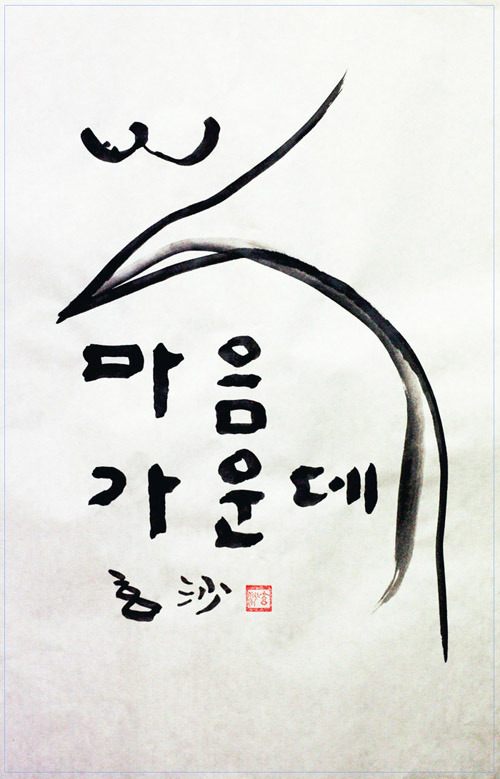 마음
가운데
沙